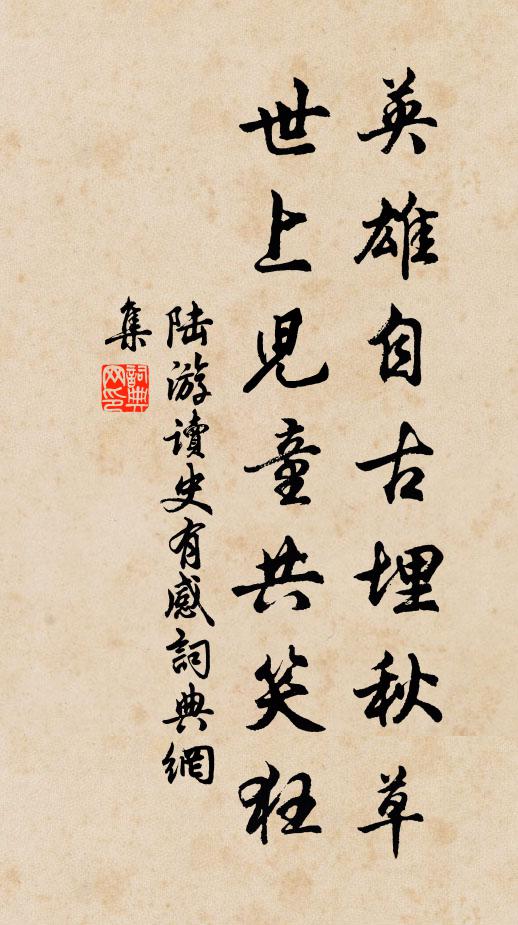 英雄自古埋秋草
世上兒童共笑狂
陆游讀史有感詞典網
集
詞典
网印